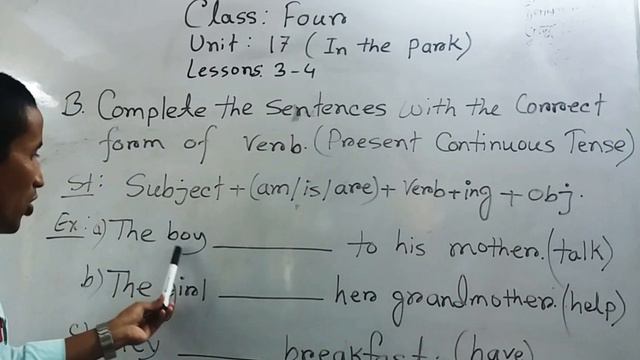 Class: Four
Unit: 17 (In the Park)
Lessons 3-4
B. Complete the Sentences with the Correct
form of verb. (Present Continuous Tense)
St: Subject + (am/is/are) + verb + ing + obj.
Ex: a) The boy __________ to his mother. (talk)
b) The girl __________ her grandmother. (help)
__________ breakfast. (have)